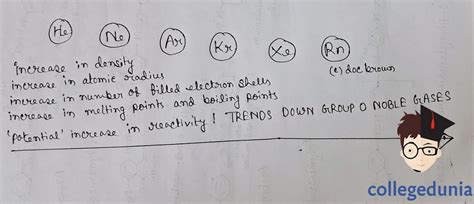 He Ne Ar Kr Xe Rn
increase in density
(c) doc brown
increase in atomic radius
increase in number of filled electron shells
increase in melting points and boiling points
'potential' increase in reactivity! TRENDS DOWN GROUP O NOBLE GASES
collegedunia